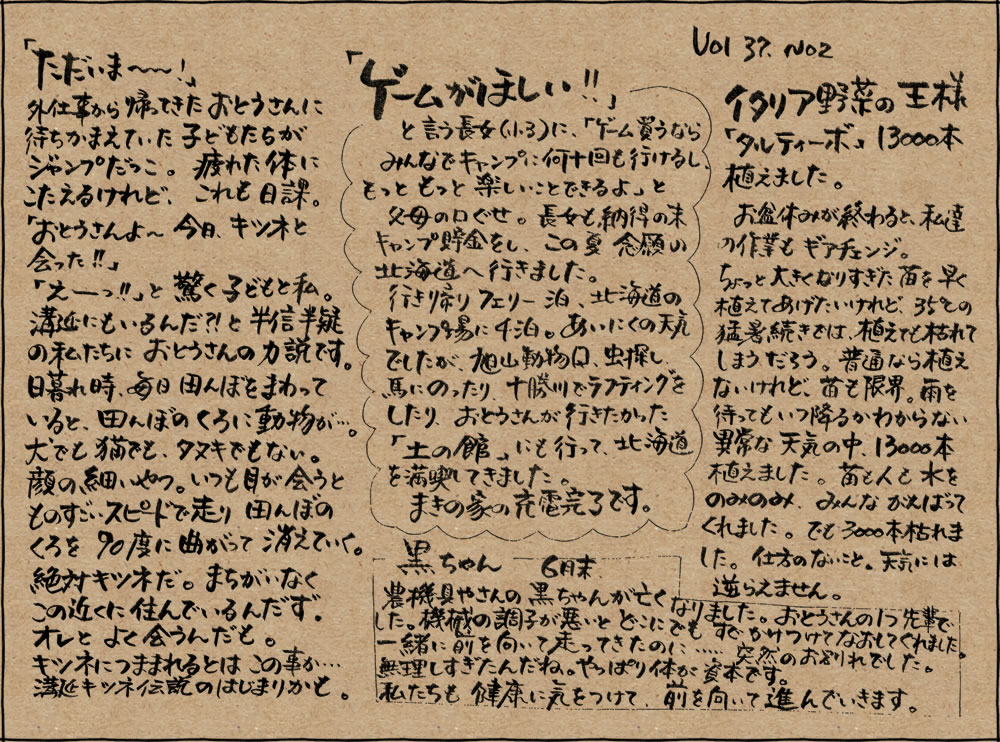 Vol 37. No2
イタリア野菜の王様
「タルティーボ」13000本
植えました。
お盆休みが終わると、私達
の作業もギアチェンジ。
ちょっと大きくなりすぎた苗を早く
植えてあげたいけれど、35℃の
猛暑続きでは、植えても枯れて
しまうだろう。普通なら植え
ないけれど、苗も限界。雨を
待ってもいつ降るかわからない
異常な天気の中、13000本
植えました。苗も人も水を
のみのみ、みんながんばって
くれました。でも3000本枯れま
した。仕方のないこと。天気には
逆らえません。
「ゲームがほしい!!」
と言う長女(小3)に、「ゲーム買うなら
みんなでキャンプに何十回も行けるし、
もっともっと楽しいことできるよ。」と
父母の口ぐせ。長女も納得の末
キャンプ貯金をし、この夏念願の
北海道へ行きました。
行き帰りフェリー泊、北海道の
キャンプ場に4泊。あいにくの天気
でしたが、旭山動物園、虫探し、
馬にのったり、十勝川でラフティングを
したり、おとうさんが行きたかった
「土の館」にも行って、北海道
を満喫してきました。
まきの家の充電完了です。
黒ちゃん 6月末
農機具やさんの黒ちゃんが亡くなりました。おとうさんの1つ先輩で
した。機械の調子が悪いとどこにでもすぐかけつけてなおしてくれました。
一緒に前を向いて走ってきたのに…… 突然のお別れでした。
無理しすぎたんだね。やっぱり体が資本です。
私たちも健康に気をつけて、前を向いて進んでいきます。
「ただいま〜〜!」
外仕事から帰ってきたおとうさんに
待ちかまえていた子どもたちが
ジャンプだっこ。疲れた体に
こたえるけれど、これも日課。
「おとうさんよ〜今日、キツネと
会った!!」
「えーっ!!」と驚く子どもと私。
溝延にもいるんだ?!と半信半疑
の私たちにおとうさんの力説です。
日暮れ時、毎日田んぼをまわって
いると、田んぼのくろに動物が…。
犬でも猫でも、タヌキでもない。
顔の細いやつ。いつも目が会うと
ものすごいスピードで走り田んぼの
くろを90度に曲がって消えていく。
絶対キツネだ。まちがいなく
この近くに住んでいるんだず。
オレとよく会うんだも。
キツネにつままれるとはこの事か…
溝延キツネ伝説のはじまりかも。